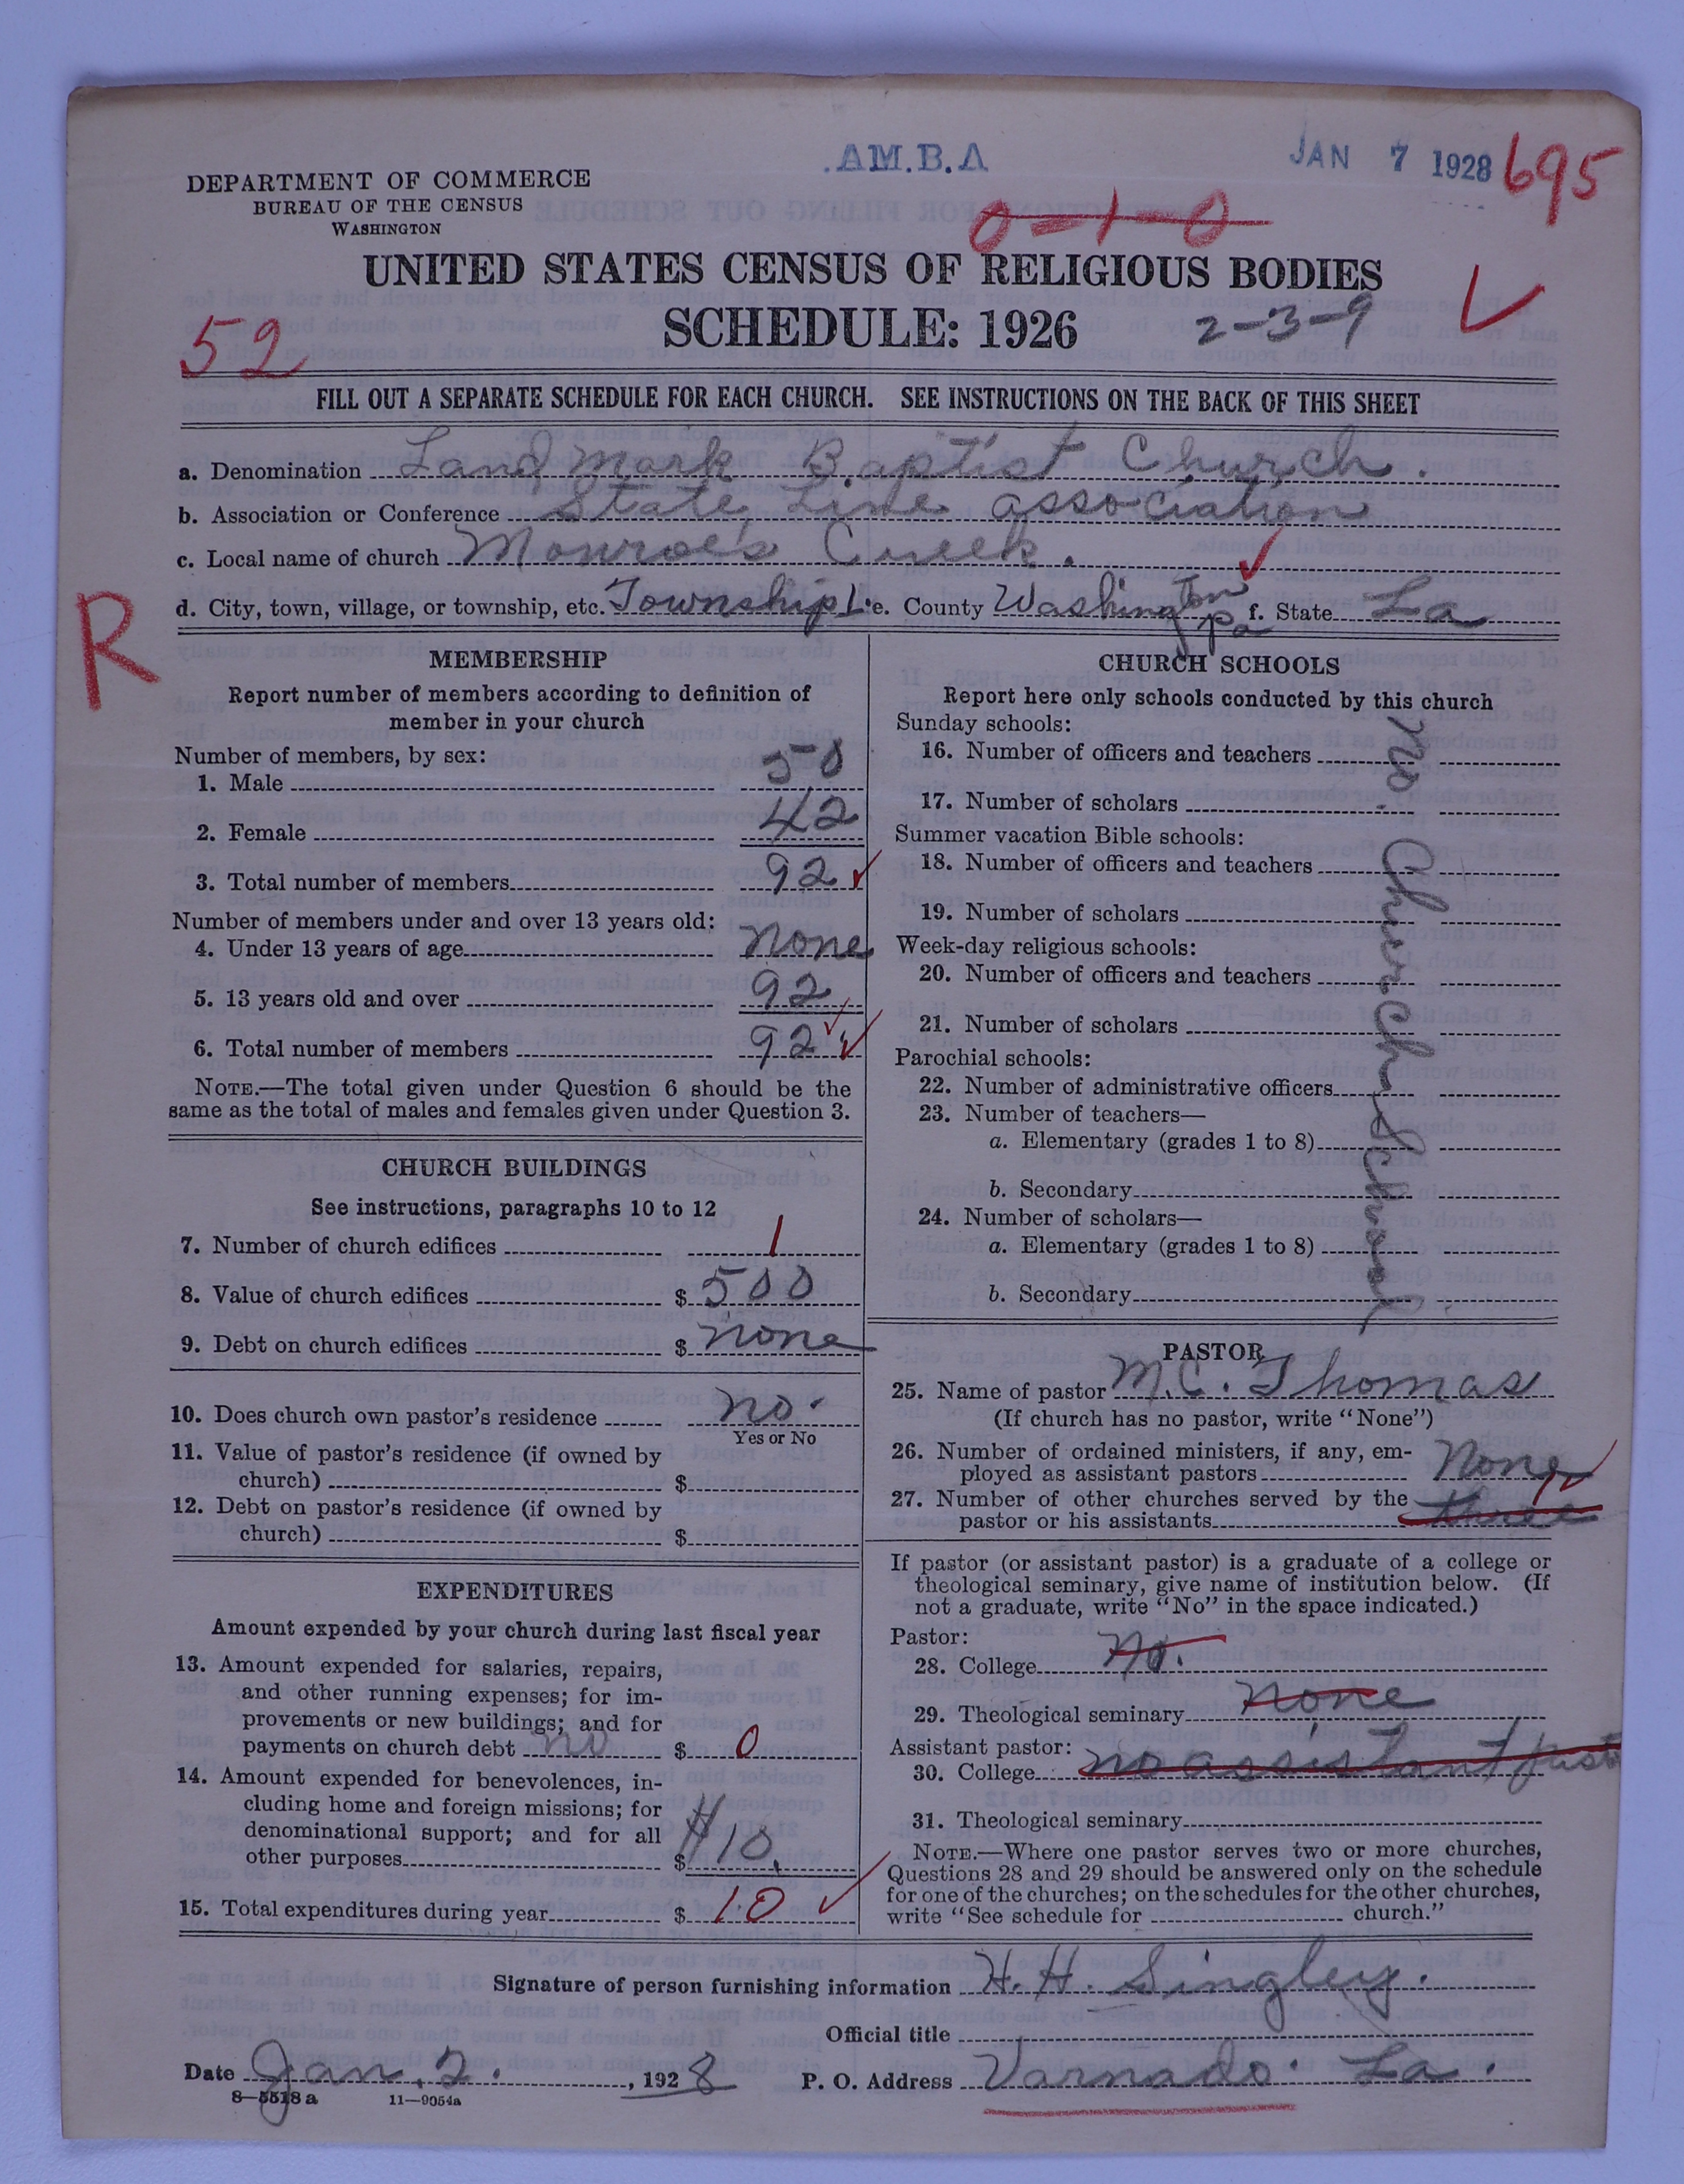 .AM.B.A
JAN 7 1928
695
DEPARTMENT OF COMMERCE
BUREAU OF THE CENSUS
WASHINGTON
0-1-0
UNITED STATES CENSUS OF RELIGIOUS BODIES
SCHEDULE: 1926
2-3-9
52
FILL OUT A SEPARATE SCHEDULE FOR EACH CHURCH. SEE INSTRUCTIONS ON THE BACK OF THIS SHEET
a. Denomination Land Mark Baptist Church.
b. Association or Conference State Line association
c. Local name of church Monroe's Creek.
d. City, town, village, or township, etc. Township e. County Washington Pa f. State La
R
MEMBERSHIP
Report number of members according to definition of
member in your church
Number of members, by sex:
1. Male 50
2. Female 42
3. Total number of members 92
Number of members under and over 13 years old:
4. Under 13 years of age none
5. 13 years old and over 92
6. Total number of members 92
NOTE.—The total given under Question 6 should be the
same as the total of males and females given under Question 3.
CHURCH BUILDINGS
See instructions, paragraphs 10 to 12
7. Number of church edifices 1
8. Value of church edifices $ 500
9. Debt on church edifices $ none
10. Does church own pastor's residence no.
Yes or No
11. Value of pastor's residence (if owned by
church) $
12. Debt on pastor's residence (if owned by
church) $
EXPENDITURES
Amount expended by your church during last fiscal year
13. Amount expended for salaries, repairs,
and other running expenses; for im-
provements or new buildings; and for
payments on church debt no $ 0
14. Amount expended for benevolences, in-
cluding home and foreign missions; for
denominational support; and for all
other purposes $ $10.
15. Total expenditures during year $ 10
CHURCH SCHOOLS
Report here only schools conducted by this church
Sunday schools:
16. Number of officers and teachers
17. Number of scholars
Summer vacation Bible schools:
18. Number of officers and teachers
19. Number of scholars
Week-day religious schools:
20. Number of officers and teachers
21. Number of scholars
Parochial schools:
22. Number of administrative officers
23. Number of teachers—
a. Elementary (grades 1 to 8)
b. Secondary
24. Number of scholars—
a. Elementary (grades 1 to 8)
b. Secondary
no Church School
PASTOR
25. Name of pastor M.C. Thomas
(If church has no pastor, write "None")
26. Number of ordained ministers, if any, em-
ployed as assistant pastors None
27. Number of other churches served by the
pastor or his assistants three
If pastor (or assistant pastor) is a graduate of a college or
theological seminary, give name of institution below. (If
not a graduate, write "No" in the space indicated.)
Pastor:
28. College No.
29. Theological seminary none
Assistant pastor:
30. College no assistant past
31. Theological seminary
NOTE.—Where one pastor serves two or more churches,
Questions 28 and 29 should be answered only on the schedule
for one of the churches; on the schedules for the other churches,
write "See schedule for church."
Signature of person furnishing information H. H. Singley.
Official title
Date Jan. 2. , 1928
P. O. Address Varnado. La.
8—5518a 11—9054a